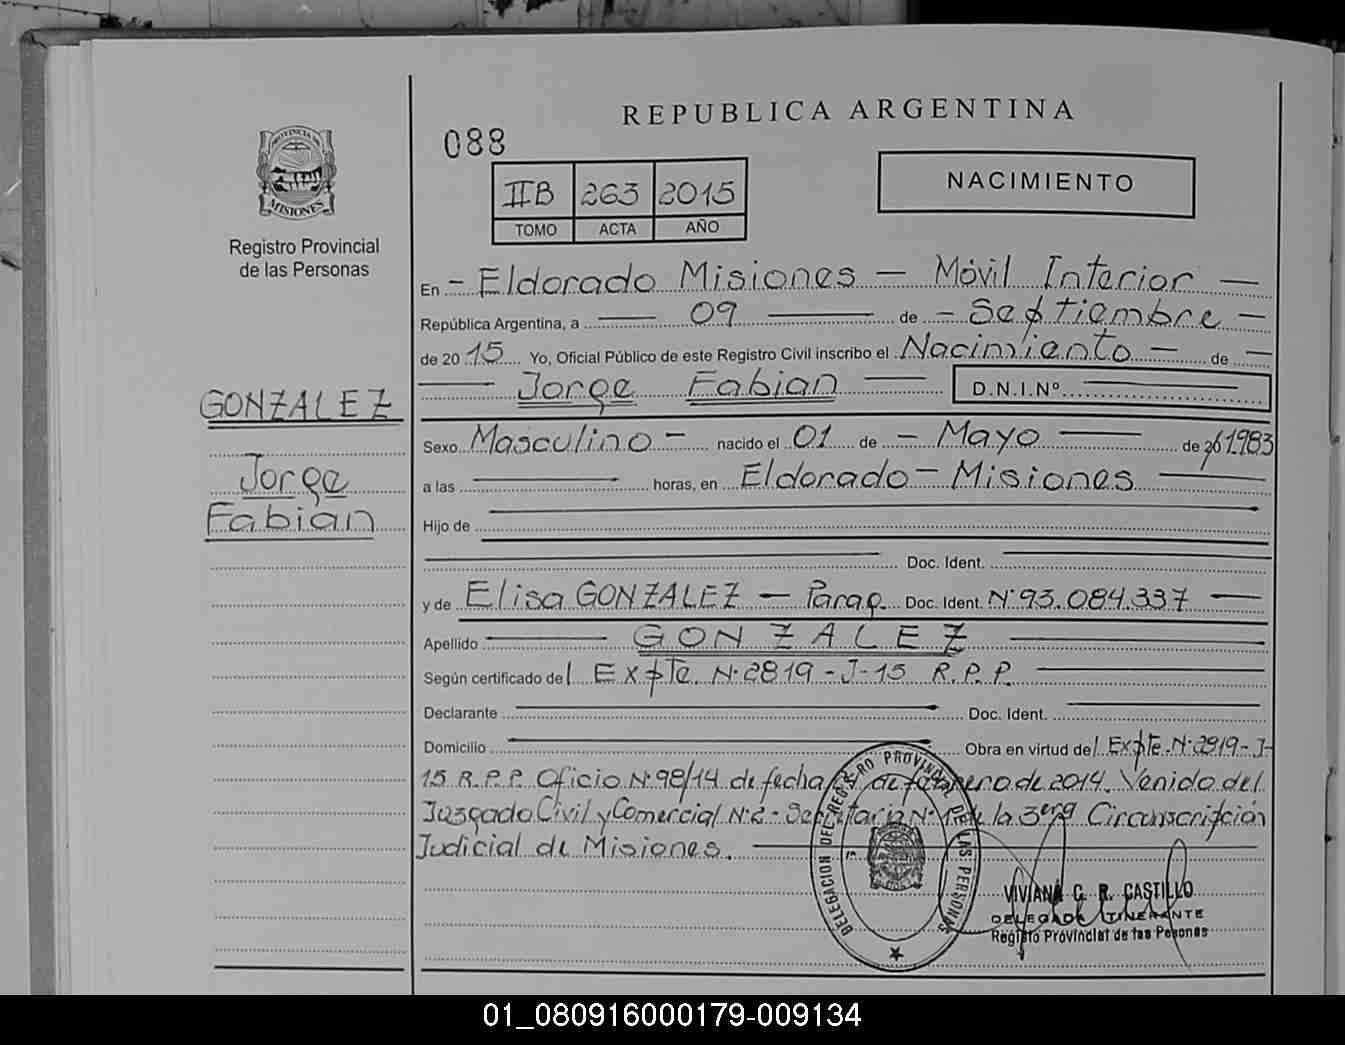 REPUBLICA ARGENTINA
088
PROVINCIA DE
MISIONES
Registro Provincial
de las Personas
IIB 263 2015
TOMO ACTA AÑO
NACIMIENTO
En - Eldorado Misiones - Móvil Interior -
República Argentina, a — 09 — de - Septiembre -
de 2015 Yo, Oficial Público de este Registro Civil inscribo el Nacimiento - de -
— Jorge Fabian — D.N.I.Nº —
GONZALEZ
Jorge
Fabian
Sexo Masculino - nacido el 01 de - Mayo — de 1983
a las — horas, en Eldorado - Misiones —
Hijo de
Doc. Ident.
y de Elisa GONZALEZ - Parag. Doc. Ident. Nº 93.084.337 —
Apellido — GONZALEZ —
Según certificado del Expte. Nº 2819-J-15 R.P.P. —
Declarante — Doc. Ident. —
Domicilio — Obra en virtud del Expte. Nº 2819-J-
15 R.P.P. Oficio Nº 98/14 de fecha de de 2014. Venido del
Juzgado Civil y Comercial Nº 2 - Secretaria Nº 1 de la 3era Circunscripción
Judicial de Misiones. —
DELEGACION DEL REGISTRO PROVINCIAL DE LAS PERSONAS
VIVIANA C. R. CASTILLO
DELEGADA ITINERANTE
Registro Provincial de las Pesonas
01_080916000179-009134